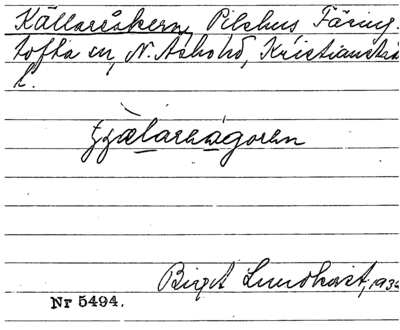 Källaråkern, Pilshus Färing-
tofta sn, N. Åsbo hd, Kristianstads
l.
Birgit Lundkvist, 1934
Nr 5494.